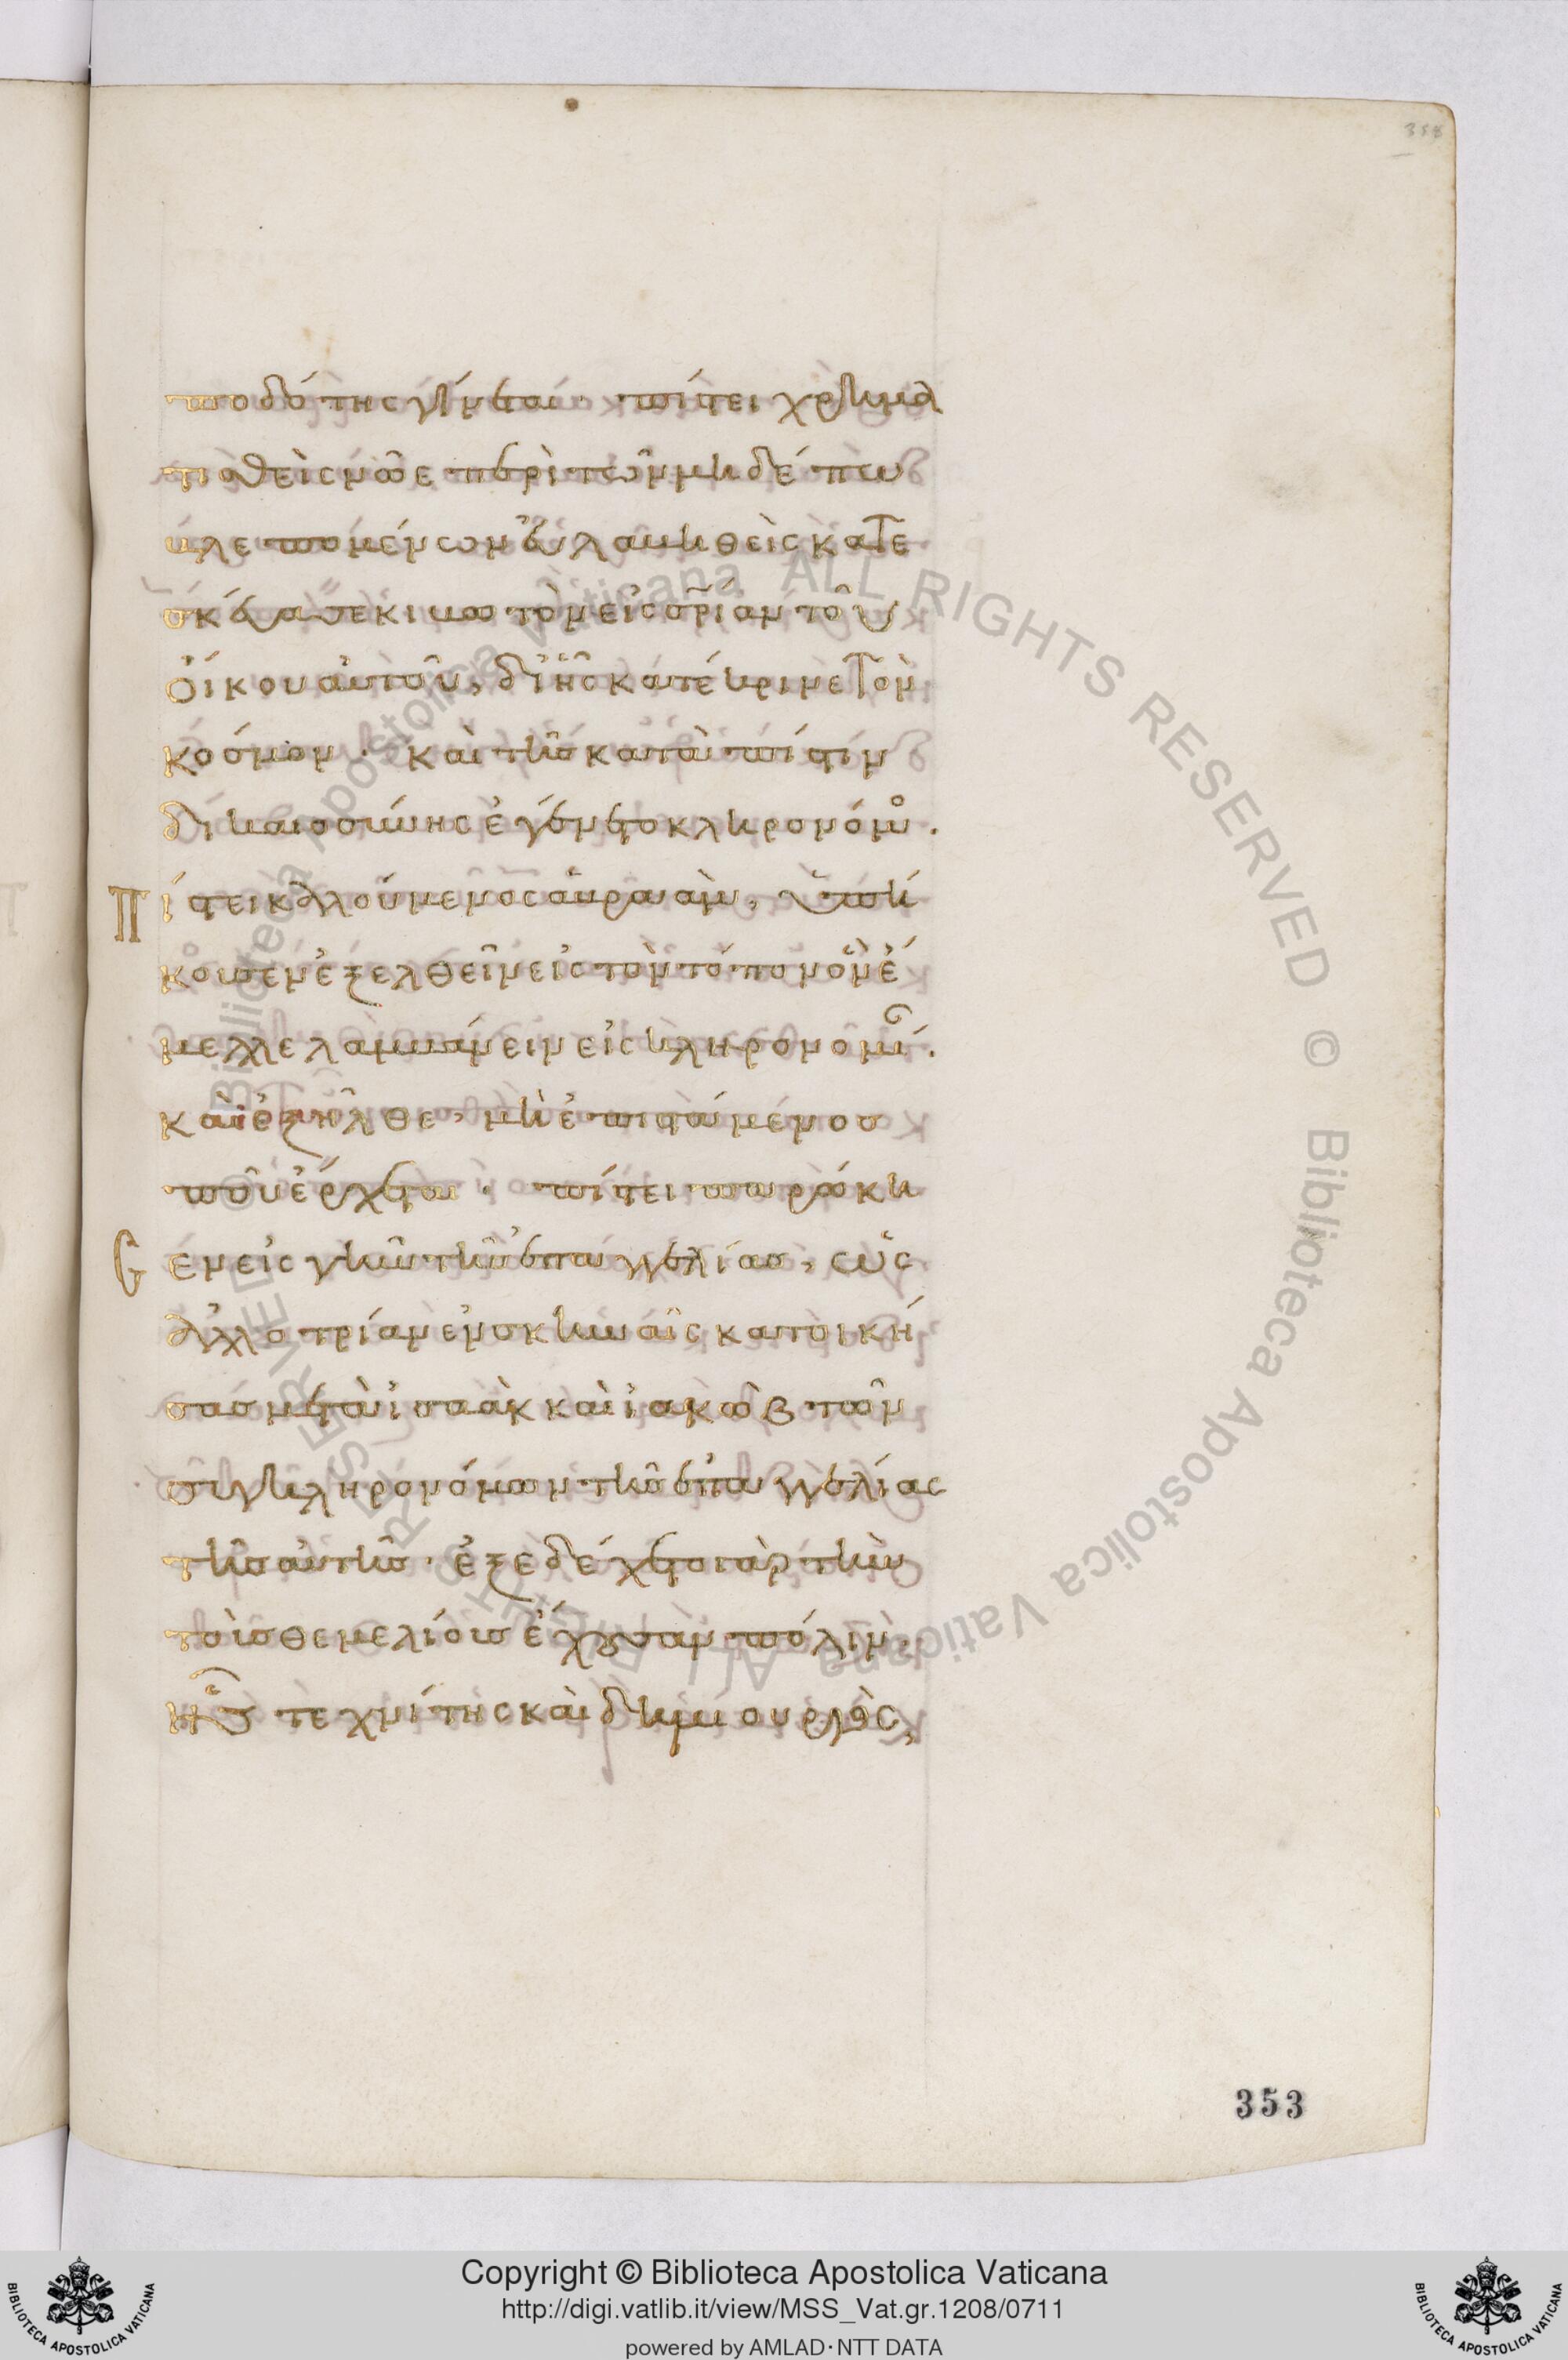 358
ποδότης γίνεται· πίστει χρημα
τισθεὶς νῶε περὶ τῶν μηδέπω
βλεπομένων εὐλαβηθεὶς κατε
σκεύασε κιβωτὸν εἰς σρίαν τοῦ
οἴκου αὐτοῦ, δι' ἧς κατέκρινε τὸν
κόσμον· καὶ τῆς κατὰ πίστιν
δικαιοσύνης ἐγένετο κληρονόμος.
Πίστει καλούμενος ἀβραὰμ, ὑπή
κουσεν ἐξελθεῖν εἰς τὸν τόπον ὃν ἔ
μελλε λαμβάνειν εἰς κληρονομίαν.
καὶ ἐξῆλθε, μὴ ἐπιστάμενος
ποῦ ἔρχεται· πίστει παρώκη
σεν εἰς γῆν τῆς ἐπαγγελίας, ὡς
ἀλλοτρίαν ἐν σκηναῖς κατοική
σας μετὰ ἰσαὰκ καὶ ἰακὼβ τῶν
συγκληρονόμων τῆς ἐπαγγελίας
τῆς αὐτῆς· ἐξεδέχετο γὰρ τὴν
τοὺς θεμελίους ἔχουσαν πόλιν,
ἧς τεχνίτης καὶ δημιουργὸς
353
Biblioteca Apostolica Vaticana ALL RIGHTS RESERVED © Biblioteca Apostolica Vaticana ALL RIGHTS RESERVED ©
Copyright © Biblioteca Apostolica Vaticana
http://digi.vatlib.it/view/MSS_Vat.gr.1208/0711
powered by AMLAD·NTT DATA
BIBLIOTECA APOSTOLICA VATICANA
BIBLIOTECA APOSTOLICA VATICANA